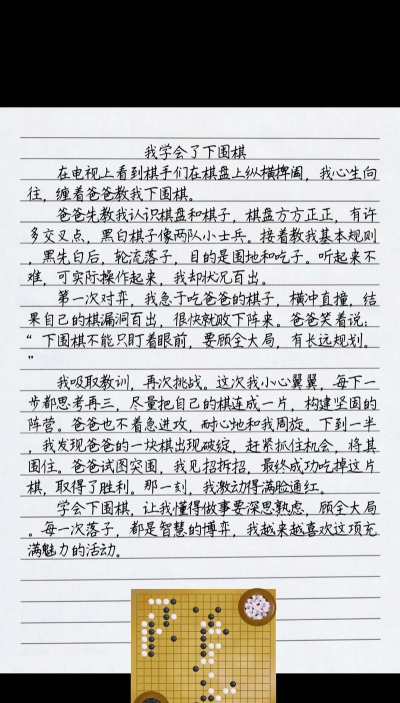 我学会了下围棋
在电视上看到棋手们在棋盘上纵横捭阖，我心生向
往，缠着爸爸教我下围棋。
爸爸先教我认识棋盘和棋子，棋盘方方正正，有许
多交叉点，黑白棋子像两队小士兵。接着教我基本规则
，黑先白后，轮流落子，目的是围地和吃子。听起来不
难，可实际操作起来，我却状况百出。
第一次对弈，我急于吃爸爸的棋子，横冲直撞，结
果自己的棋漏洞百出，很快就败下阵来。爸爸笑着说：
“下围棋不能只盯着眼前，要顾全大局，有长远规划。
”
我吸取教训，再次挑战。这次我小心翼翼，每下一
步都思考再三，尽量把自己的棋连成一片，构建坚固的
阵营。爸爸也不着急进攻，耐心地和我周旋。下到一半
，我发现爸爸的一块棋出现破绽，赶紧抓住机会，将其
围住。爸爸试图突围，我见招拆招，最终成功吃掉这片
棋，取得了胜利。那一刻，我激动得满脸通红。
学会下围棋，让我懂得做事要深思熟虑，顾全大局
。每一次落子，都是智慧的博弈，我越来越喜欢这项充
满魅力的活动。